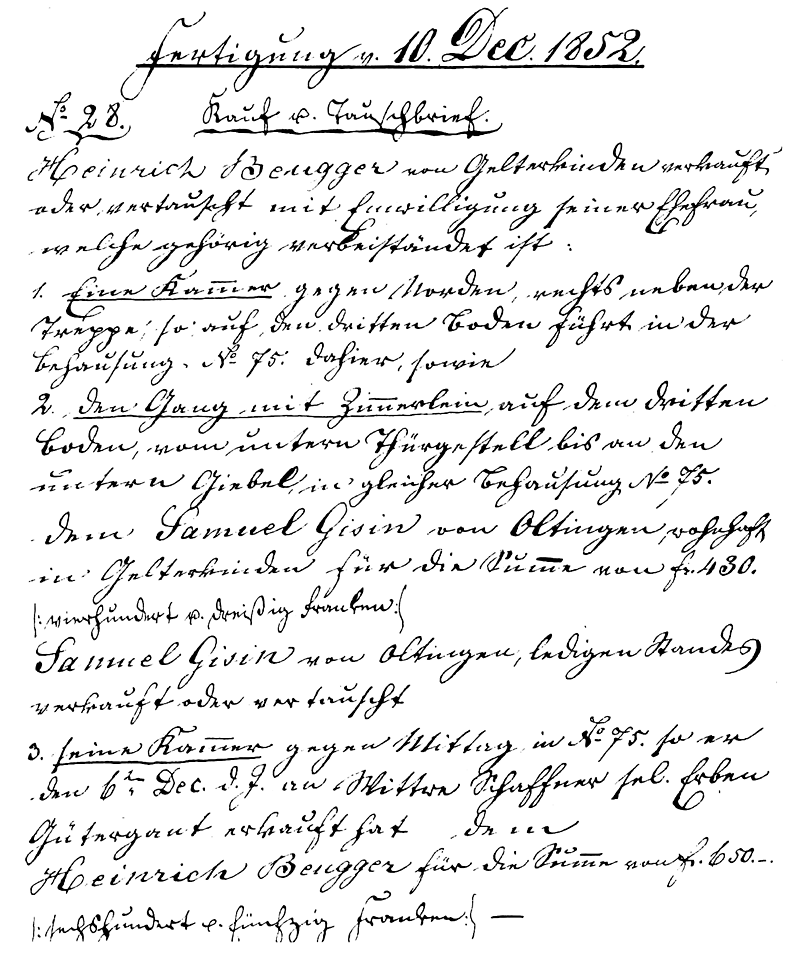 Fertigung v. 10. Dec. 1852.
No. 28. Kauf u. Tauschbrief.
Heinrich Beugger von Gelterkinden verkauft
oder vertauscht mit Einwilligung seiner Ehefrau,
welche gehörig verbeiständet ist:
1. Eine Kammer gegen Norden, rechts neben der
Treppe, so auf den dritten Boden führt in der
Behausung No 75. dahier, sowie
2. den Gang mit Zimmerlein auf dem dritten
Boden, vom untern Thürgestell bis an den
untern Giebel, in gleicher Behausung No 75.
dem Samuel Gisin von Oltingen, wohnhaft
in Gelterkinden für die Summe von fr. 430.
|: vierhundert u. dreißig Franken :|
Samuel Gisin von Oltingen, ledigen Standes
verkauft oder vertauscht
3. seine Kammer gegen Mittag in No. 75. so er
den 6ten Dec. d. J. an Wittwe Schaffner sel. Erben
Gütergant erkauft hat dem
Heinrich Beugger für die Summe von fr. 650.-.
|: sechshundert u. fünfzig Franken :| —